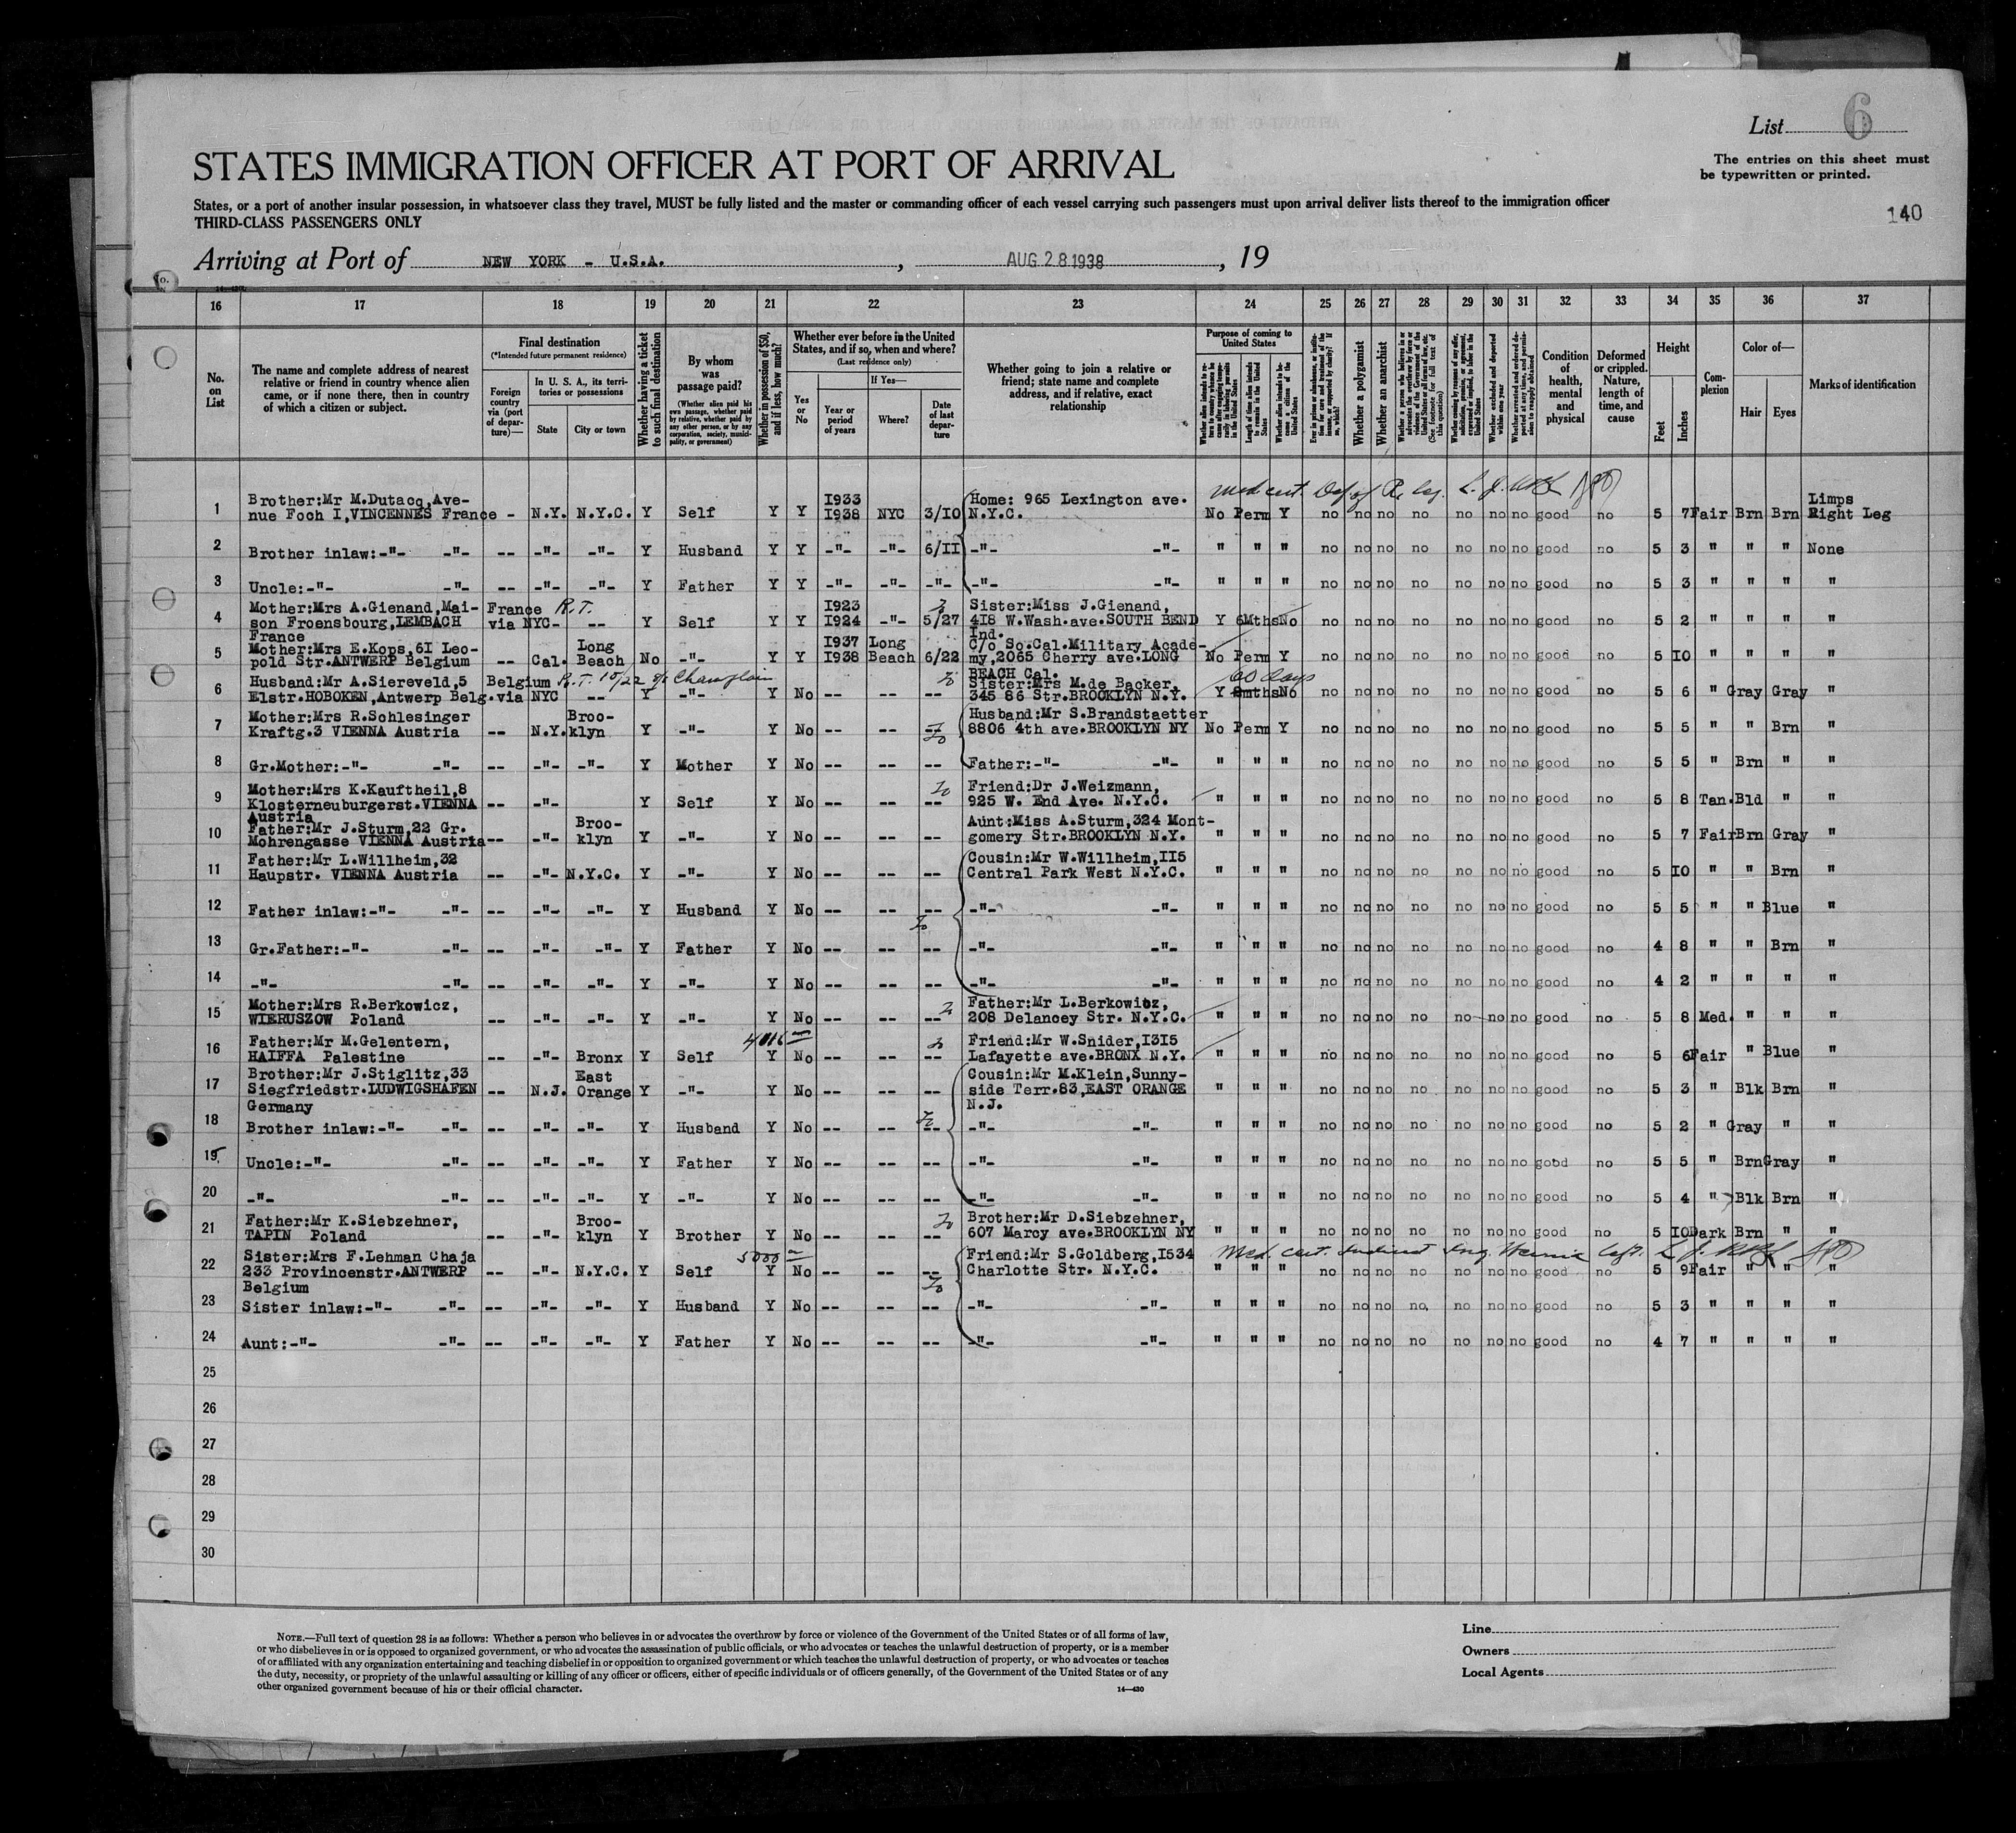 List 6
STATES IMMIGRATION OFFICER AT PORT OF ARRIVAL
The entries on this sheet must
be typewritten or printed.
States, or a port of another insular possession, in whatsoever class they travel, MUST be fully listed and the master or commanding officer of each vessel carrying such passengers must upon arrival deliver lists thereof to the immigration officer
THIRD-CLASS PASSENGERS ONLY
140
Arriving at Port of NEW YORK - U.S.A. , AUG 28 1938 , 19
16 17 18 19 20 21 22 23 24 25 26 27 28 29 30 31 32 33 34 35 36 37
No. on List
The name and complete address of nearest relative or friend in country whence alien came, or if none there, then in country of which a citizen or subject.
Final destination
(*Intended future permanent residence)
Foreign country via (port of departure)—
In U. S. A., its territories or possessions
State
City or town
Whether having a ticket to such final destination
By whom was passage paid?
(Whether alien paid his own passage, whether paid by relative, whether paid by any other person, or by any corporation, society, municipality, or government)
Whether in possession of $50, and if less, how much?
Whether ever before in the United States, and if so, when and where?
(Last residence only)
Yes or No
If Yes—
Year or period of years
Where?
Date of last departure
Whether going to join a relative or friend; state name and complete address, and if relative, exact relationship
Purpose of coming to United States
Length of time alien intends to remain in the United States
Whether alien intends to become a citizen of the United States
Whether a polygamist
Whether an anarchist
Condition of health, mental and physical
Deformed or crippled. Nature, length of time, and cause
Height
Feet
Inches
Complexion
Color of—
Hair
Eyes
Marks of identification
1 Brother:Mr M.Dutacq,Ave-
nue Foch I,VINCENNES France - N.Y. N.Y.C. Y Self Y Y I933 I938 NYC 3/I0 Home: 965 Lexington ave. N.Y.C. No Perm Y no no no no no no no good no 5 7 Fair Brn Brn Limps Right Leg
2 Brother inlaw:-"- -"- -- -"- -"- Y Husband Y Y -"- -"- 6/II -"- -"- " " " no no no no no no no good no 5 3 " " " None
3 Uncle:-"- -"- -- -"- -"- Y Father Y Y -"- -"- -"- -"- -"- " " " no no no no no no no good no 5 3 " " " "
4 Mother:Mrs A.Gienand,Mai-
son Froensbourg,LEMBACH
France France R.T. via NYC- -- Y Self Y Y I923 I924 -"- 5/27 Sister:Miss J.Gienand, 4I8 W.Wash.ave.SOUTH BEND Ind. Y 6Mths No no no no no no no no good no 5 2 " " " "
5 Mother:Mrs E.Kops,6I Leo-
pold Str.ANTWERP Belgium -- Cal. Long Beach No -"- Y Y I937 I938 Long Beach 6/22 C/o So.Cal.Military Acade-
my,2065 Cherry ave.LONG
BEACH Cal. No Perm Y no no no no no no no good no 5 I0 " " " "
6 Husband:Mr A.Siereveld,5
Elstr.HOBOKEN,Antwerp Belg. Belgium via NYC R.T. 10/22 Champlain -- Y -"- Y No -- -- Sister:Mrs M.de Backer, 345 86 Str.BROOKLYN N.Y. Y 60 days mths No no no no no no no no good no 5 6 " Gray Gray "
7 Mother:Mrs R.Schlesinger
Kraftg.3 VIENNA Austria -- N.Y. Broo-
klyn Y -"- Y No -- -- -- Husband:Mr S.Brandstaetter 8806 4th ave.BROOKLYN NY No Perm Y no no no no no no no good no 5 5 " " Brn "
8 Gr.Mother:-"- -"- -- -"- -"- Y Mother Y No -- -- -- Father:-"- -"- " " " no no no no no no no good no 5 5 " Brn " "
9 Mother:Mrs K.Kauftheil,8
Klosterneuburgerst.VIENNA
Austria -- -"- Y Self Y No -- -- -- Friend:Dr J.Weizmann, 925 W. End Ave. N.Y.C. " " " no no no no no no no good no 5 8 Tan. Bld " "
10 Father:Mr J.Sturm,22 Gr.
Mohrengasse VIENNA Austria -- -"- Broo-
klyn Y -"- Y No -- -- -- Aunt:Miss A.Sturm,324 Mont-
gomery Str.BROOKLYN N.Y. " " " no no no no no no no good no 5 7 Fair Brn Gray "
11 Father:Mr L.Willheim,32
Haupstr. VIENNA Austria -- -"- N.Y.C. Y -"- Y No -- -- -- Cousin:Mr W.Willheim,II5 Central Park West N.Y.C. " " " no no no no no no no good no 5 I0 " " Brn "
12 Father inlaw:-"- -"- -- -"- -"- Y Husband Y No -- -- -- -"- -"- " " " no no no no no no no good no 5 5 " " Blue "
13 Gr.Father:-"- -"- -- -"- -"- Y Father Y No -- -- -- -"- -"- " " " no no no no no no no good no 4 8 " " Brn "
14 -"- -"- -- -"- -"- Y -"- Y No -- -- -- -"- -"- " " " no no no no no no no good no 4 2 " " " "
15 Mother:Mrs R.Berkowicz,
WIERUSZOW Poland -- -"- -"- Y -"- Y No -- -- -- Father:Mr L.Berkowitz, 208 Delancey Str. N.Y.C. " " " no no no no no no no good no 5 8 Med. " " "
16 Father:Mr M.Gelentern,
HAIFFA Palestine -- -"- Bronx Y Self Y No -- -- -- Friend:Mr W.Snider,I3I5 Lafayette ave.BRONX N.Y. " " " no no no no no no no good no 5 6 Fair " Blue "
17 Brother:Mr J.Stiglitz,33
Siegfriedstr.LUDWIGSHAFEN
Germany -- N.J. East Orange Y -"- Y No -- -- -- Cousin:Mr M.Klein,Sunny-
side Terr.83,EAST ORANGE
N.J. " " " no no no no no no no good no 5 3 " Blk Brn "
18 Brother inlaw:-"- -"- -- -"- -"- Y Husband Y No -- -- -- -"- -"- " " " no no no no no no no good no 5 2 " Gray " "
19 Uncle:-"- -"- -- -"- -"- Y Father Y No -- -- -- -"- -"- " " " no no no no no no no good no 5 5 " Brn Gray "
20 -"- -"- -- -"- -"- Y -"- Y No -- -- -- -"- -"- " " " no no no no no no no good no 5 4 " Blk Brn "
21 Father:Mr K.Siebzehner,
TAPIN Poland -- -"- Broo-
klyn Y Brother Y No -- -- -- Brother:Mr D.Siebzehner, 607 Marcy ave.BROOKLYN NY " " " no no no no no no no good no 5 I0 Dark Brn " "
22 Sister:Mrs F.Lehman Chaja
233 Provincenstr.ANTWERP
Belgium -- -"- N.Y.C. Y Self 5000 Y No -- -- -- Friend:Mr S.Goldberg,I534 Charlotte Str. N.Y.C. " " " no no no no no no no good no 5 9 Fair " " "
23 Sister inlaw:-"- -"- -- -"- -"- Y Husband Y No -- -- -- -"- -"- " " " no no no no no no no good no 5 3 " " " "
24 Aunt:-"- -"- -- -"- -"- Y Father Y No -- -- -- -"- -"- " " " no no no no no no no good no 4 7 " " " "
25
26
27
28
29
30
NOTE.—Full text of question 28 is as follows: Whether a person who believes in or advocates the overthrow by force or violence of the Government of the United States or of all forms of law,
or who disbelieves in or is opposed to organized government, or who advocates the assassination of public officials, or who advocates or teaches the unlawful destruction of property, or is a member
of or affiliated with any organization entertaining and teaching disbelief in or opposition to organized government or which teaches the unlawful destruction of property, or who advocates or teaches
the duty, necessity, or propriety of the unlawful assaulting or killing of any officer or officers, either of specific individuals or of officers generally, of the Government of the United States or of any
other organized government because of his or their official character.
14—430
Line
Owners
Local Agents